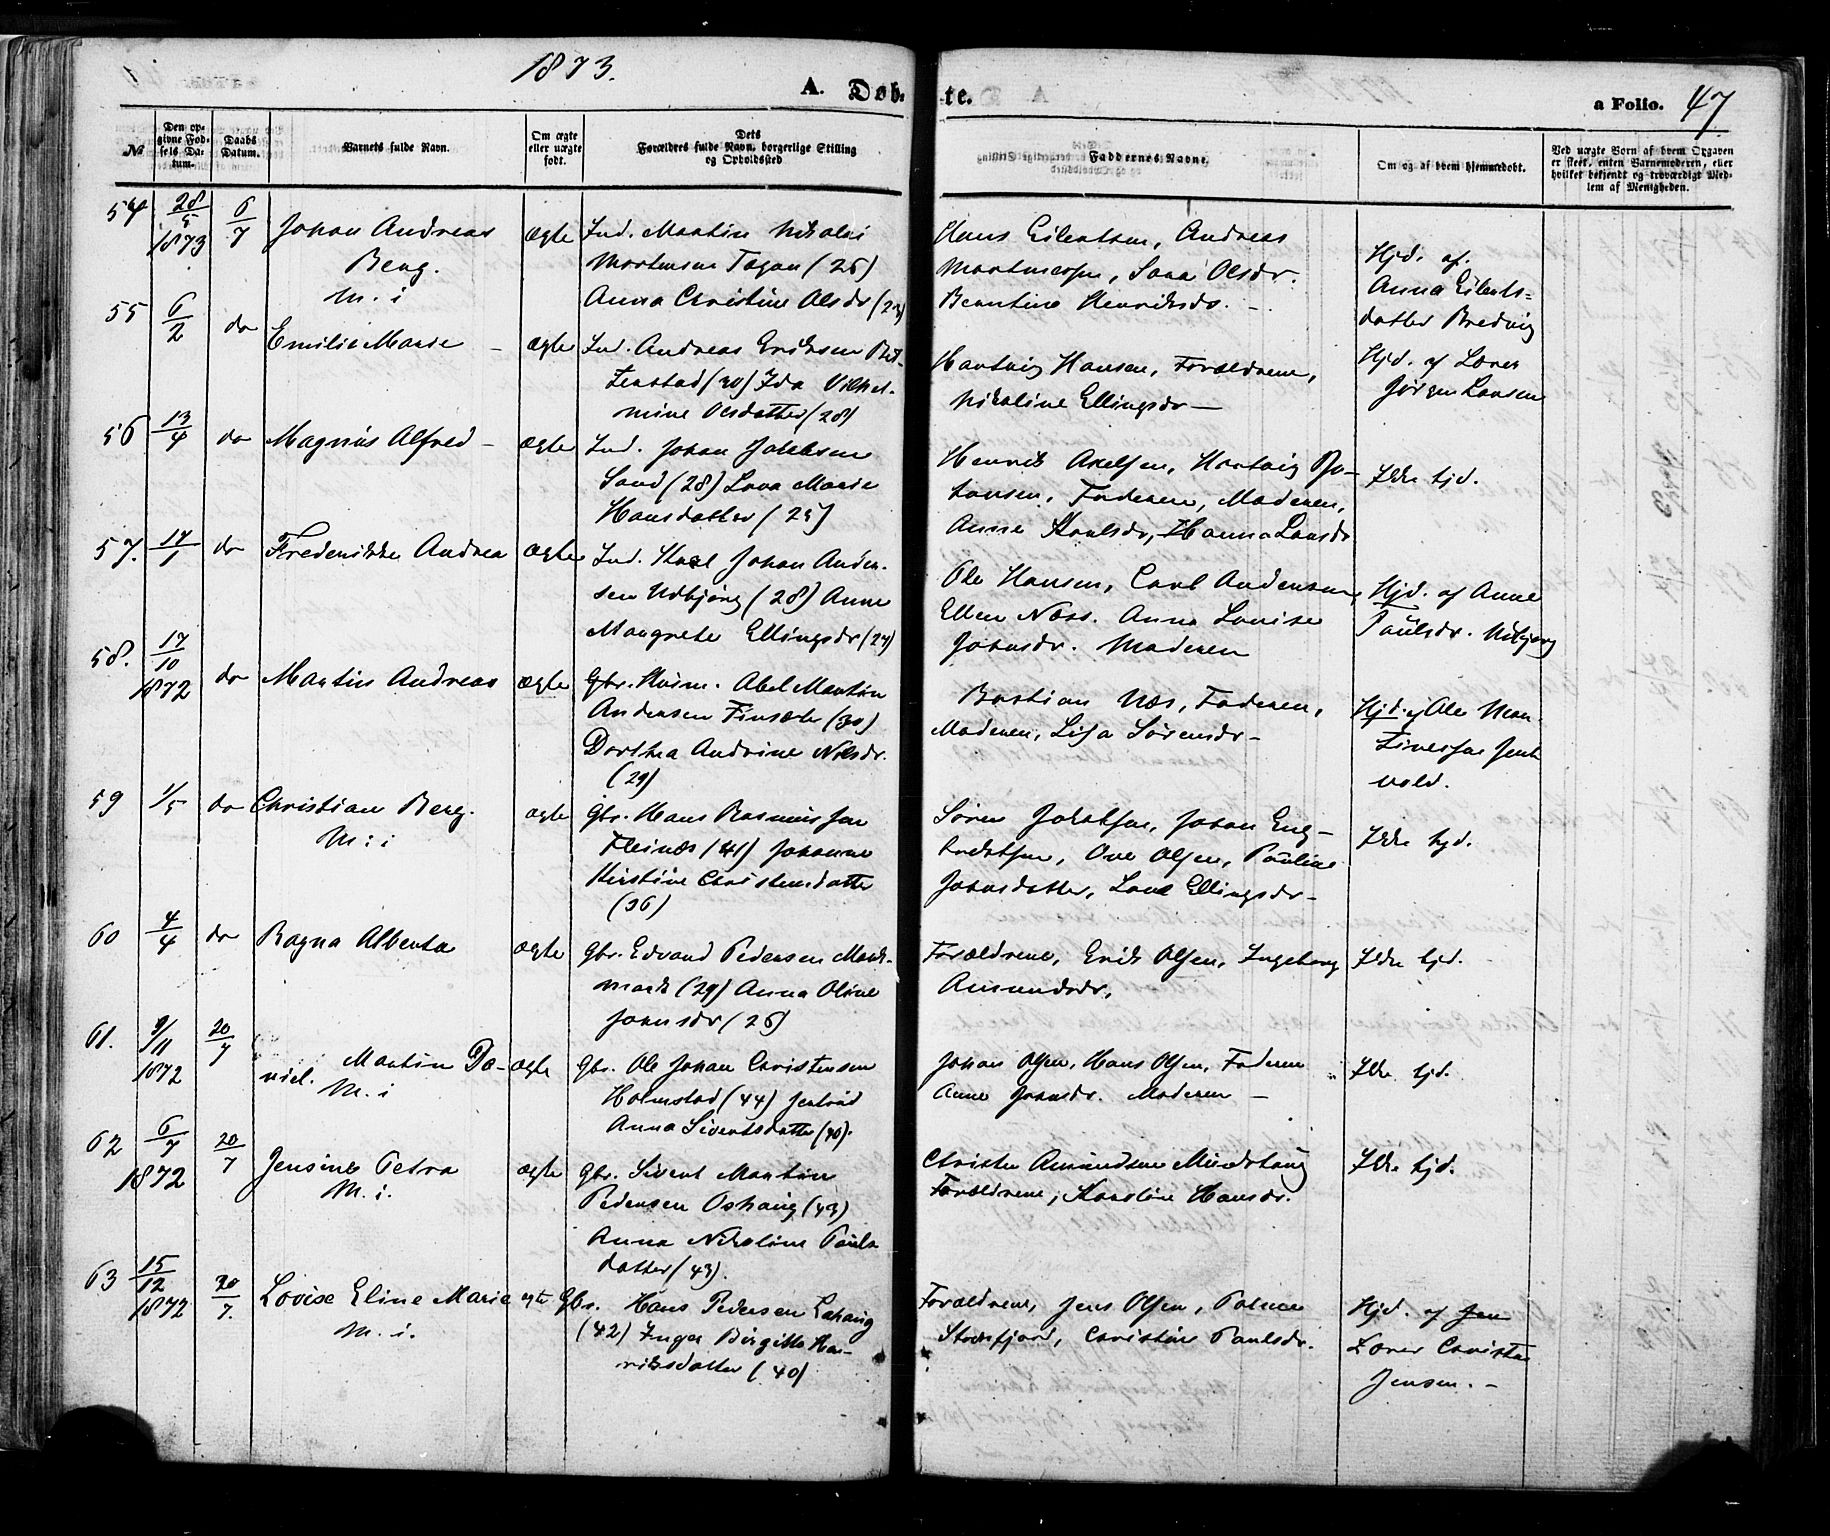 1873.
A. Døb-te.
a Folio. 47
№ | Den opgivne Fødsels Datum. | Daabs Datum. | Barnets fulde Navn. | Om ægte eller uægte født. | Dets Forældres fulde Navn, borgerlige Stilling og Opholdssted | Faddernes Navne. | Om og af hvem hjemmedøbt. | Ved uægte Børn af hvem Opgaven er skeet, enten Barnemoderen, eller hvilket bekjendt og troværdigt Medlem af Menigheden.
54 28/5 6/7 Johan Andreas ægte Ind. Martin Nikolai Hans Eilertsen, Andreas Hjd. af.
1873 Berg. Mortensen (26) Olsdr. Anna Eilerts=
M. i Anna Christine Olsdr (23) Berntine Henriksdr. – datter Bredvig
55 6/2 do Emilie Marie – ægte Ind. Andreas Eriksen Hartvig Hansen, Forældrene, Hjd. af Lærer
(30) Ida Vilhel- Nikoline Ellingsdr – Jørgen Larsen
mine Olsdatter (28)
56 13/4 do Magnus Alfred – ægte Ind. Johan Jakobsen Henrik Axelsen, Hartvig Jo- Ikke hjd.
Sand (28) Lava Marie hansen, Faderen, Moderen,
Hansdatter (25) Anne Karlsdr, Hanna Larsdr
57. 17/1 do Frederikke Andrea ægte Ind. Karl Johan Ander- Ole Hansen, Carl Andersen, Hjd. af Anne
sen Udbjørg (28) Anne Ellen Næss. Anna Lovise Paulsdr. Utbjorg
Margrete Ellingsdr (24) Johnsdr. Moderen
58. 17/10 do Martin Andreas ægte Gbr. Abel Martin Bastian Næs, Faderen, Hjd. af Ole Mar-
1872 Andersen Finsæter (30) Moderen, Lisa Sørensdr – tinessen Jent
Dorthea Andrine Nilsdr. vold.
(29)
59 1/5 do Christian Berg. ægte Gbr. Hans Rasmussen Søren Jakobsen, Johan Eng- Ikke hjd.
M: i Fleinæs (41) Johanne Ove Olsen, Pauline
Kirstine Christensdatter Johnsdatter, Ellingsdr –
(36)
60 4/4 do Ragna Alberta ægte Gbr. Edvard Pedersen Mark- Forældrene, Erik Olsen, Ingeborg Ikke hjd.
mark (29) Anna Oline Amundsdr.
Johnsdr (26)
61. 9/11 20/7 Martin Da- ægte Gbr. Ole Johan Christensen Johan Olsen, Hans Olsen, Faderen Ikke hjd.
1872 niel. M. i Holmstad (44) Anne Johnsdr. Moderen –
Anna Sivertsdatter (40).
62 6/7 20/7 Jensine Petra ægte Gbr. Sivert Martin Christen Amundsen Ikke hjd.
1872 M. i. Pedersen Oshaug (43) Forældrene, Karoline Hansdr.
Anna Nikoline Pauls
datter (43).
63 15/12 20/7. Lovise Eline Marie Gbr. Hans Pedersen Forældrene, Jens Olsen, Hjd. af Jen
1872 M. i. (42) Inger Birgitte Hen- Stokfjord, Christine Paulsdr. Lærer Christen
riksdatter (40) Jensen. –